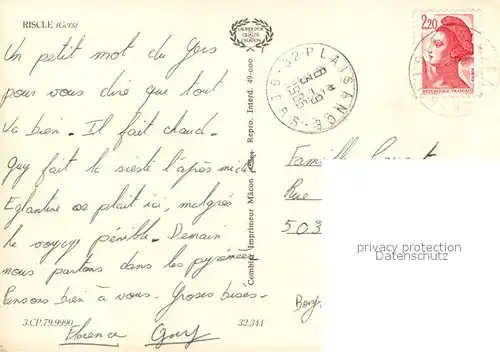 RISCLE (Gers)
Un petit mot du Gers
pour vous dire que tout
va bien - Il fait chaud -
Guy fait la sieste l'après midi
Eglantine se plait ici, malgrés
le voyage pénible - Demain
nous partons dans les pyrénées
Pensons bien à vous. Groses bises -
Florence Guy
3.CP.79.9990
32.344
Combier Imprimeur Mâcon
Repro. Interd. 49-000
LAURIER D'OR
QUALITÉ
CRÉATION
32-PLAISANCE
GERS
2,20
REPUBLIQUE FRANÇAISE
Famille
Rue
503
privacy protection
Datenschutz